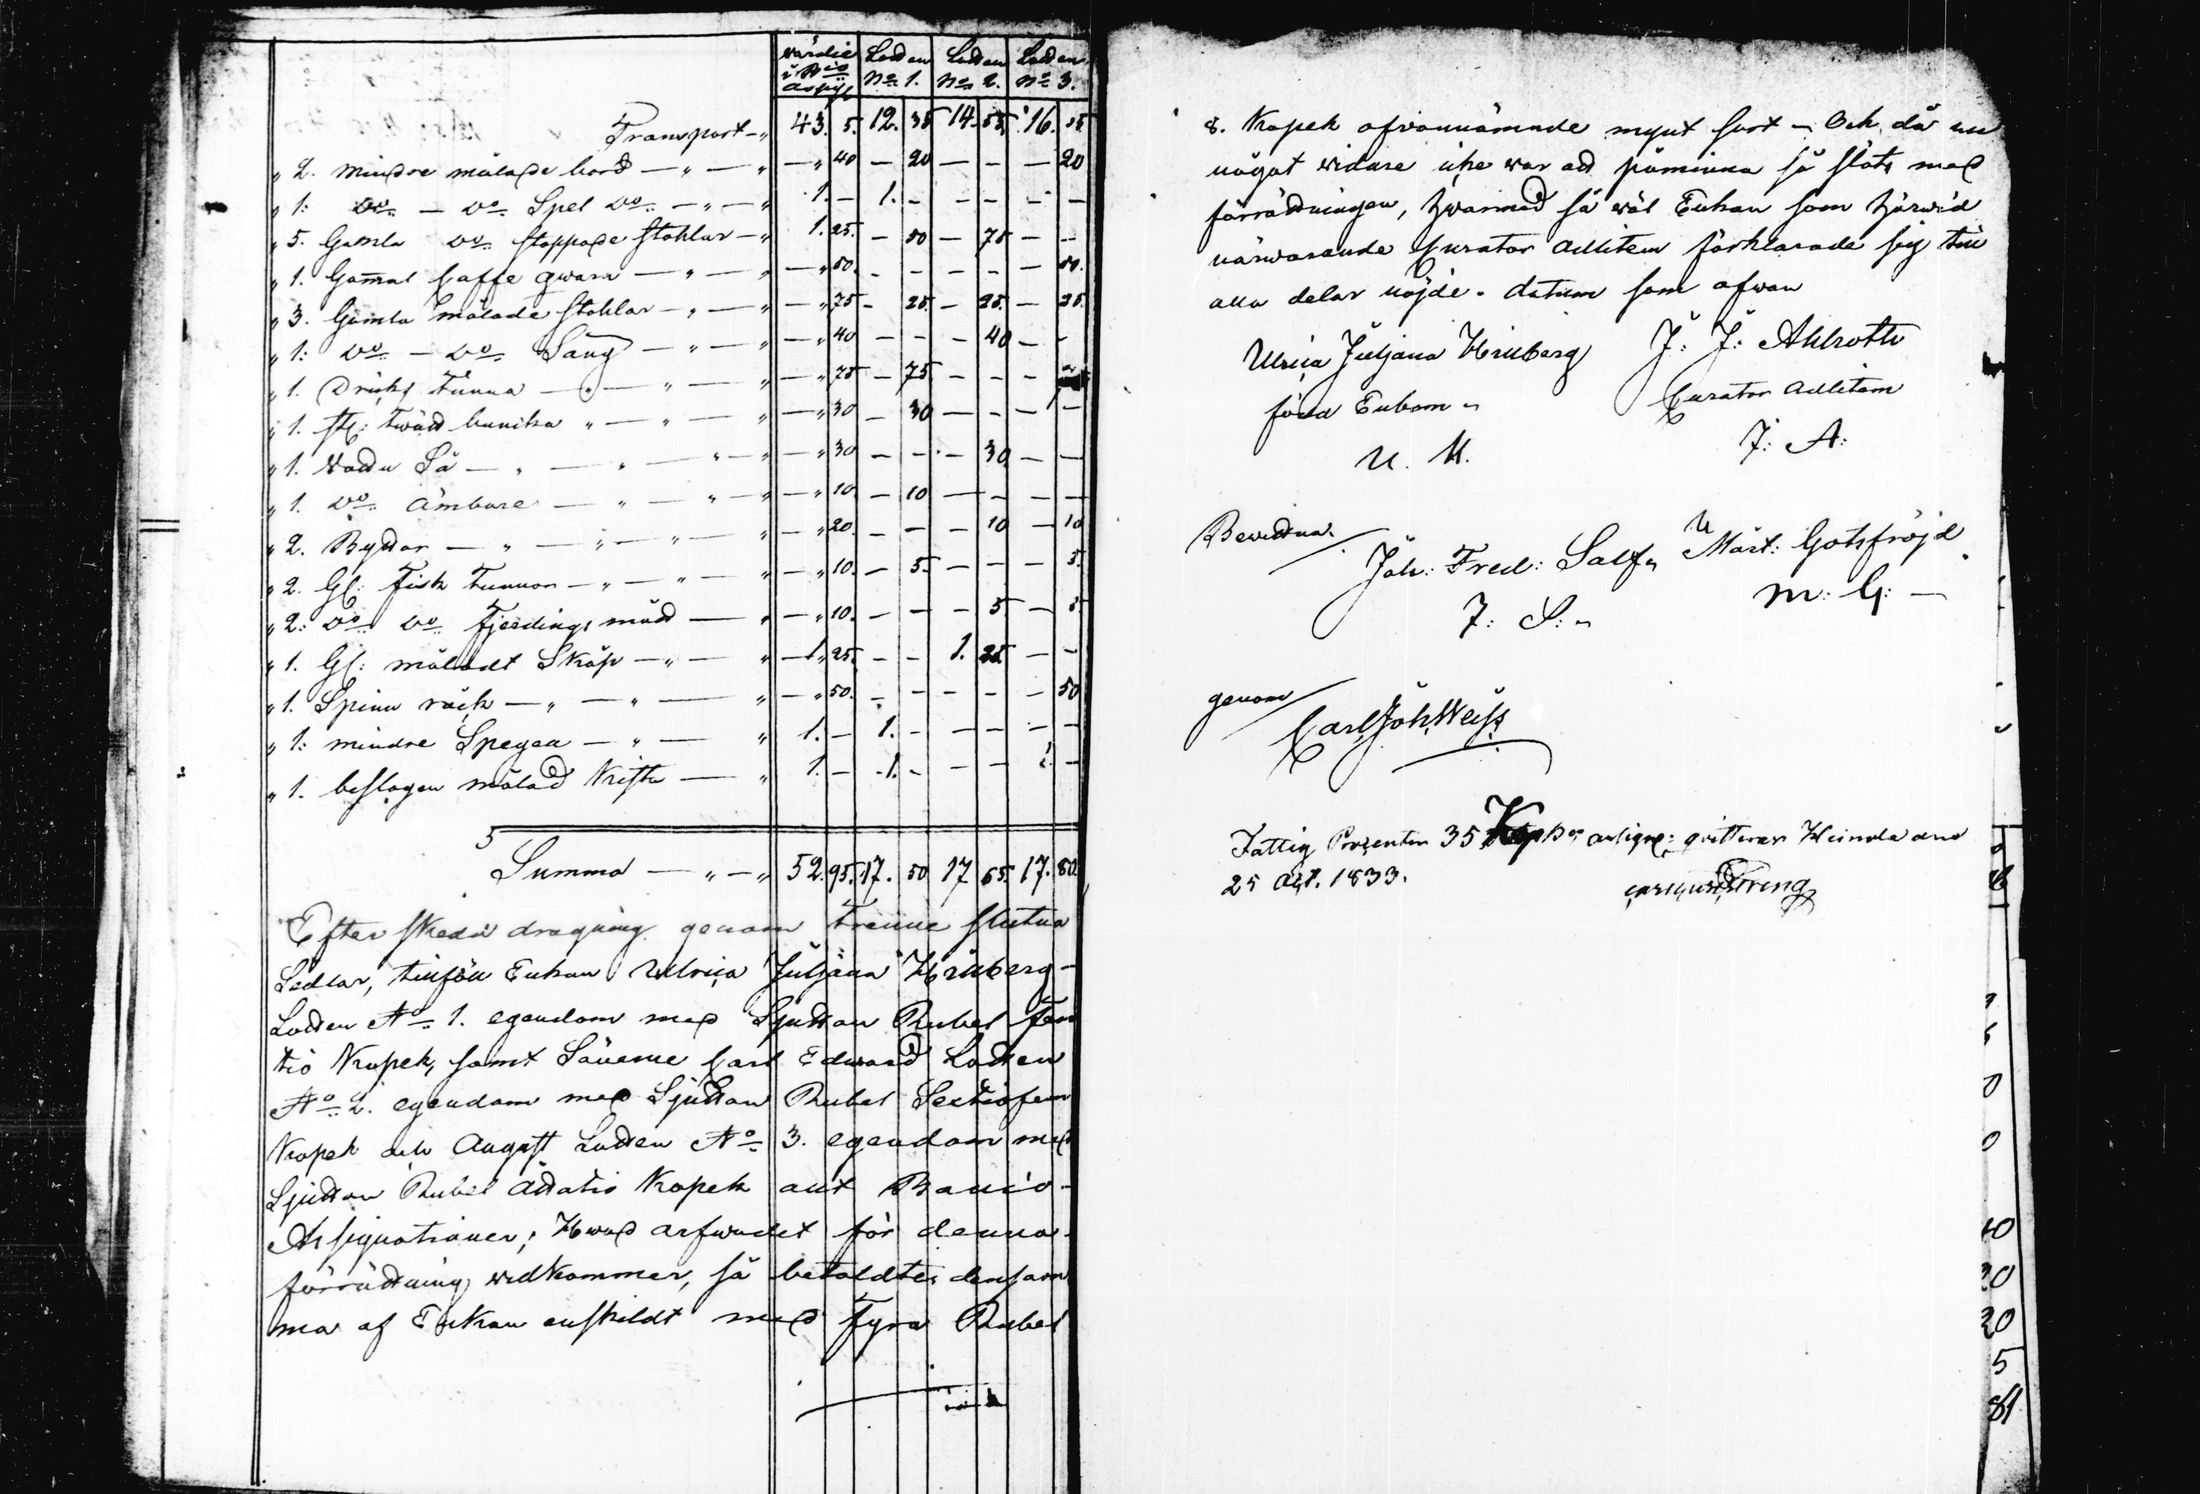 wärdie i Bco Assig: Lodden No 1. Lodden No 2. Lodden No 3.
Transport 43. 5. 12. 35 14. 55. 16. 15.
" 2. mindre målade bord — " — " — " 40 — 20 — — — 20
" 1: Do — Do Spel Do — " — " 1. — 1. — — — — —
" 5. Gamla Do stoppade stohlar — " 1. 25. — 50 — 75 — —
" 1. Gamal Caffe qwarn — " — " — " 50. — — — — — 50.
" 3. Gamla målade stohlar — " — " — " 75 — 25. — 25. — 25.
" 1: Do — Do Säng — " — " — " 40 — — — 40 — —
" 1. Dricks tunna — " — " — " — " 75 — 75. — — —
" 1. st: twätt bunika " — " — " — " 30 — 30 — — — —
" 1. wattu Så — " — " — " — " — " 30 — — — 30 — —
" 1. Do Ämbare — " — " — " — " 10 — 10 — — — —
" 2. Byttor — " — " — " — " — " 20 — — — 10 — 10
" 2. Gl: fisk tunnor — " — " — " — " 10. — 5. — — — 5.
" 2: Do Do fjerdings mått — " — " 10. — — — 5 — 5.
" 1. Gl: måladt Skåp — " — " — 1. 25. — — 1. 25 — —
" 1. Spinn råck — " — " — " — " 50. — — — — — 50
" 1: mindre Spegel — " — " 1. — 1. — — — — —
" 1. beslagen målad Kista — " 1. — 1. — — — —
Summa — " — " 52. 95. 17. 50 17 65. 17. 80.
Efter skedd dragning genom trenne slutna
Sedlar, tillföll Enkan Ulrica Juljana Hinberg
Lodden No 1. egendom med Sjutton Rubel fem
tio Kopek, samt Sönerne Carl Edward Lodden
No 2. egendom med Sjutton Rubel Sextiofem
Kopek och August Lodden No 3. egendom med
Sjutton Rubel Åttatio Kopek alt Banco
Assignationer; Hwad arfwodet för denna
förrättning widkommer, så betaldtes densam
ma af Enkan enskildt med fyra Rubel
8. Kopek ofwannämnde mynt sort — Och då nu
något widare icke war att påminna så slöts med
förrättningen, hwarmed så wäl Enkan som härwid
närwarande Curator adlitem förklarade sig till
alla delar nöjde. datum som ofwan
Ulrica Juljana Hinberg J: J: Ahlroth
född Enbom " Curator adlitem
U. H. J: A:
Bewittna
Joh: Fred: Salf " Märt: Gotsfröjd
J: S: " M: G: —
genom
Carl Joh Weiss
Fattig Procenten 35 Kop Bco assigne: qvitterar Heinola den
25 Aug. 1833.